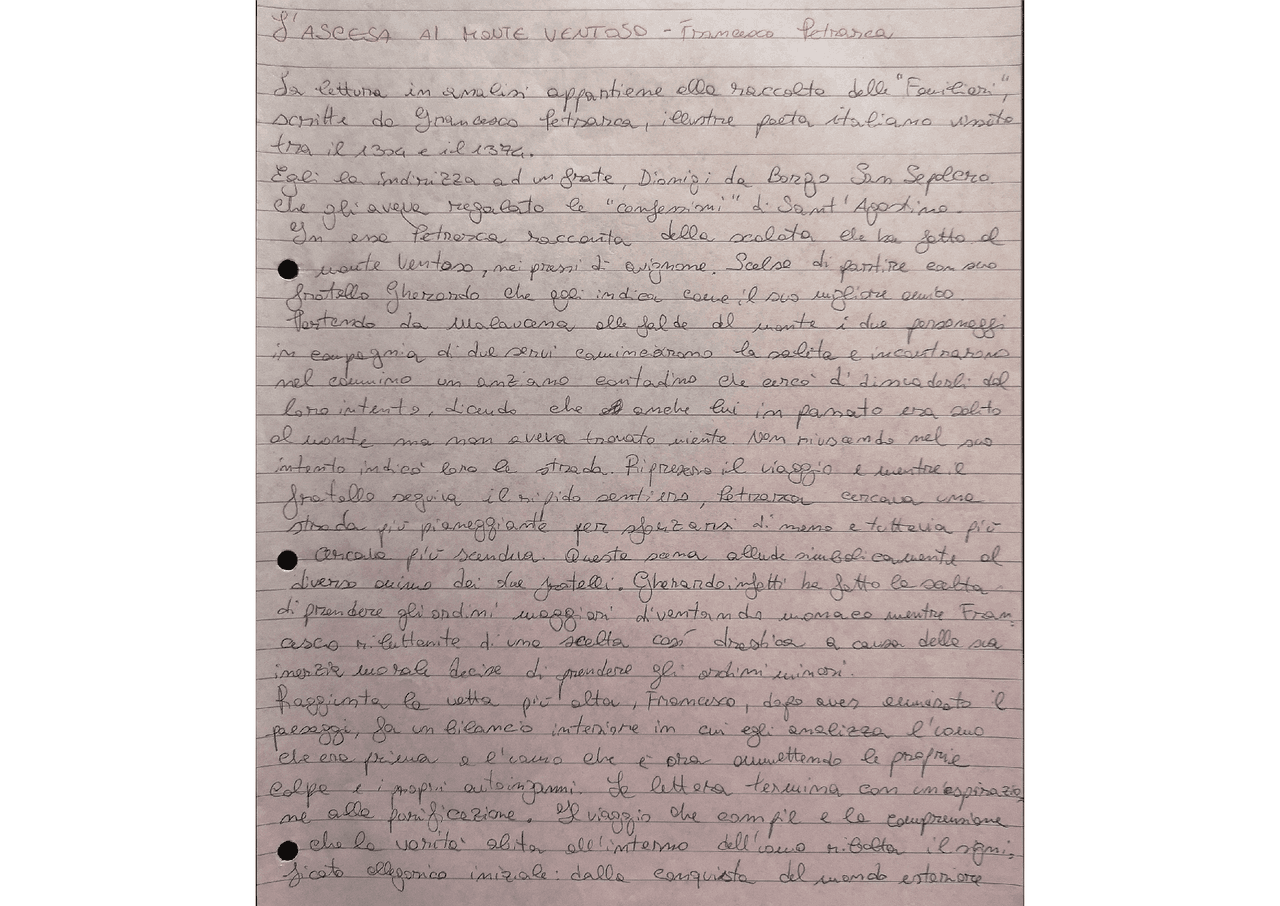 L'ASCESA AL MONTE VENTOSO - Francesco Petrarca
La lettura in analisi appartiene alla raccolta delle "Familiari",
scritte da Francesco Petrarca, illustre poeta italiano vissuto
tra il 1304 e il 1374.
Egli la indirizza ad un frate, Dionigi da Borgo San Sepolcro.
che gli aveva regalato le "confessioni" di Sant'Agostino.
In essa Petrarca racconta della scalata che ha fatto al
monte Ventoso, nei pressi di avignone. Scelse di partire con suo
fratello Gherardo che egli indica come il suo migliore amico.
Partendo da Malaucena alle falde del monte i due personaggi
in compagnia di due servi cominciarono la salita e incontrarono
nel cammino un anziano contadino che cercò di dissuaderli dal
loro intento, dicendo che anche lui in passato era salito
al monte ma non aveva trovato niente. Non riuscendo nel suo
intento indicò loro la strada. Ripresero il viaggio e mentre il
fratello seguiva il ripido sentiero, Petrarca cercava una
strada più pianeggiante per sforzarsi di meno e tuttavia più
cercava più scendeva. Questa scena allude simbolicamente al
diverso animo dei due fratelli. Gherardo infatti ha fatto la scelta
di prendere gli ordini maggiori diventando monaco mentre Fran-
cesco riluttante di una scelta così drastica a causa della sua
inerzia morale decise di prendere gli ordini minori.
Raggiunta la vetta più alta, Francesco, dopo aver ammirato il
paesaggi, fa un bilancio interiore in cui egli analizza l'uomo
che era prima e l'uomo che è ora ammettendo le proprie
colpe e i propri autoinganni. La lettera termina con un'aspirazio
ne alla purificazione. Il viaggio che compie e la comprensione
che la verità abita all'interno dell'uomo ribalta il signi-
ficato allegorico iniziale: dalla conquista del mondo esteriore